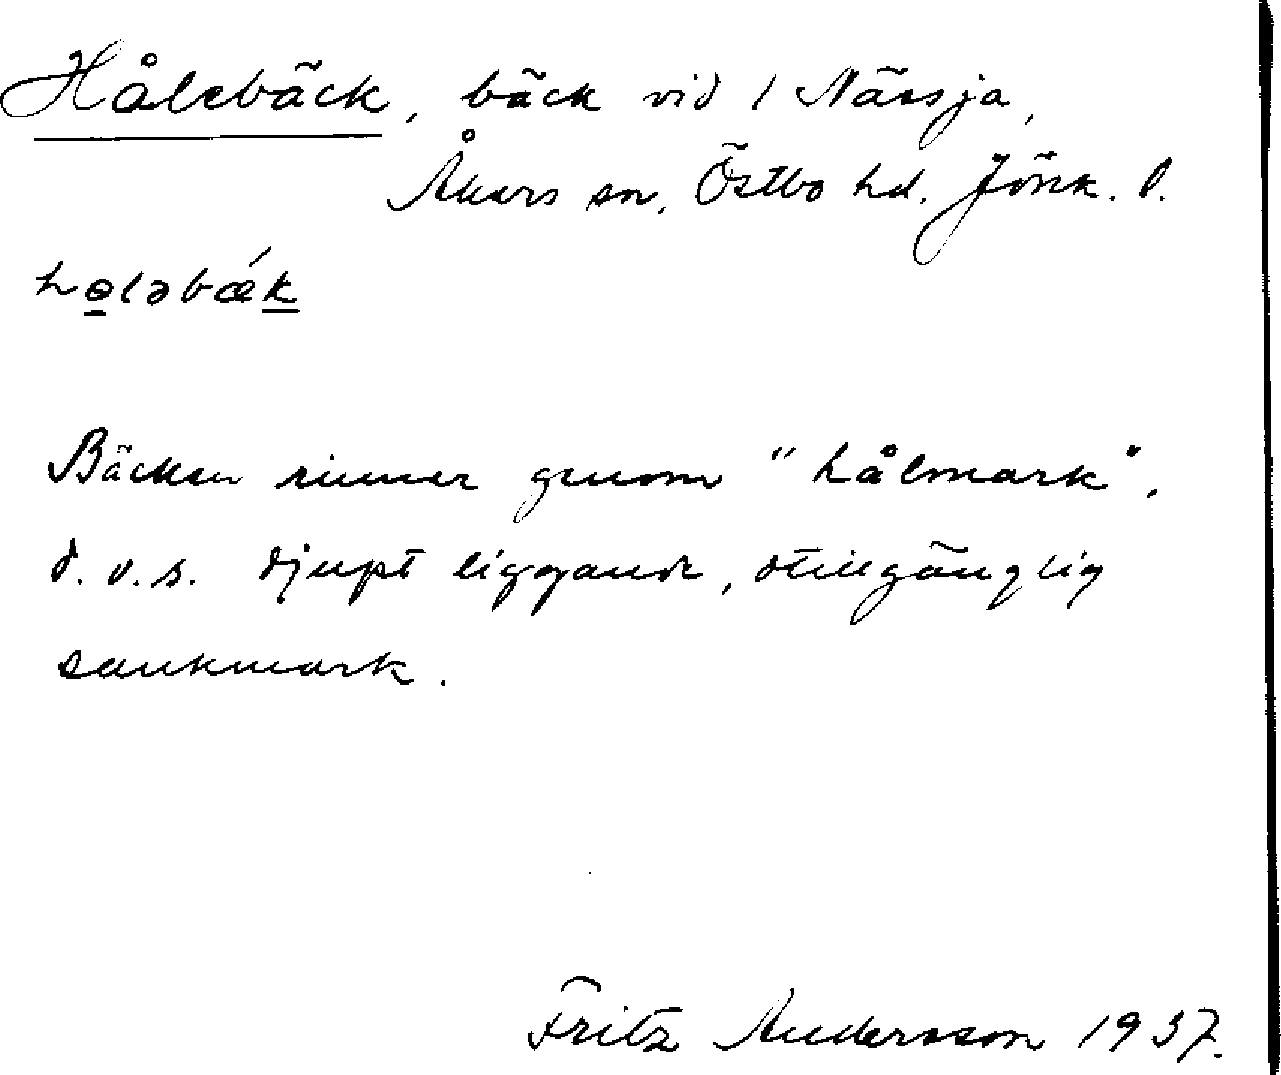 Hålebäck, bäck vid 1 Näresja,
Åkers sn, Östbo hd. Jönk. l.
holəbǽk
Bäcken rinner genom "hålmark",
d.v.s. djupt liggande, otillgänglig
sankmark.
Fritz Andersson 1937.